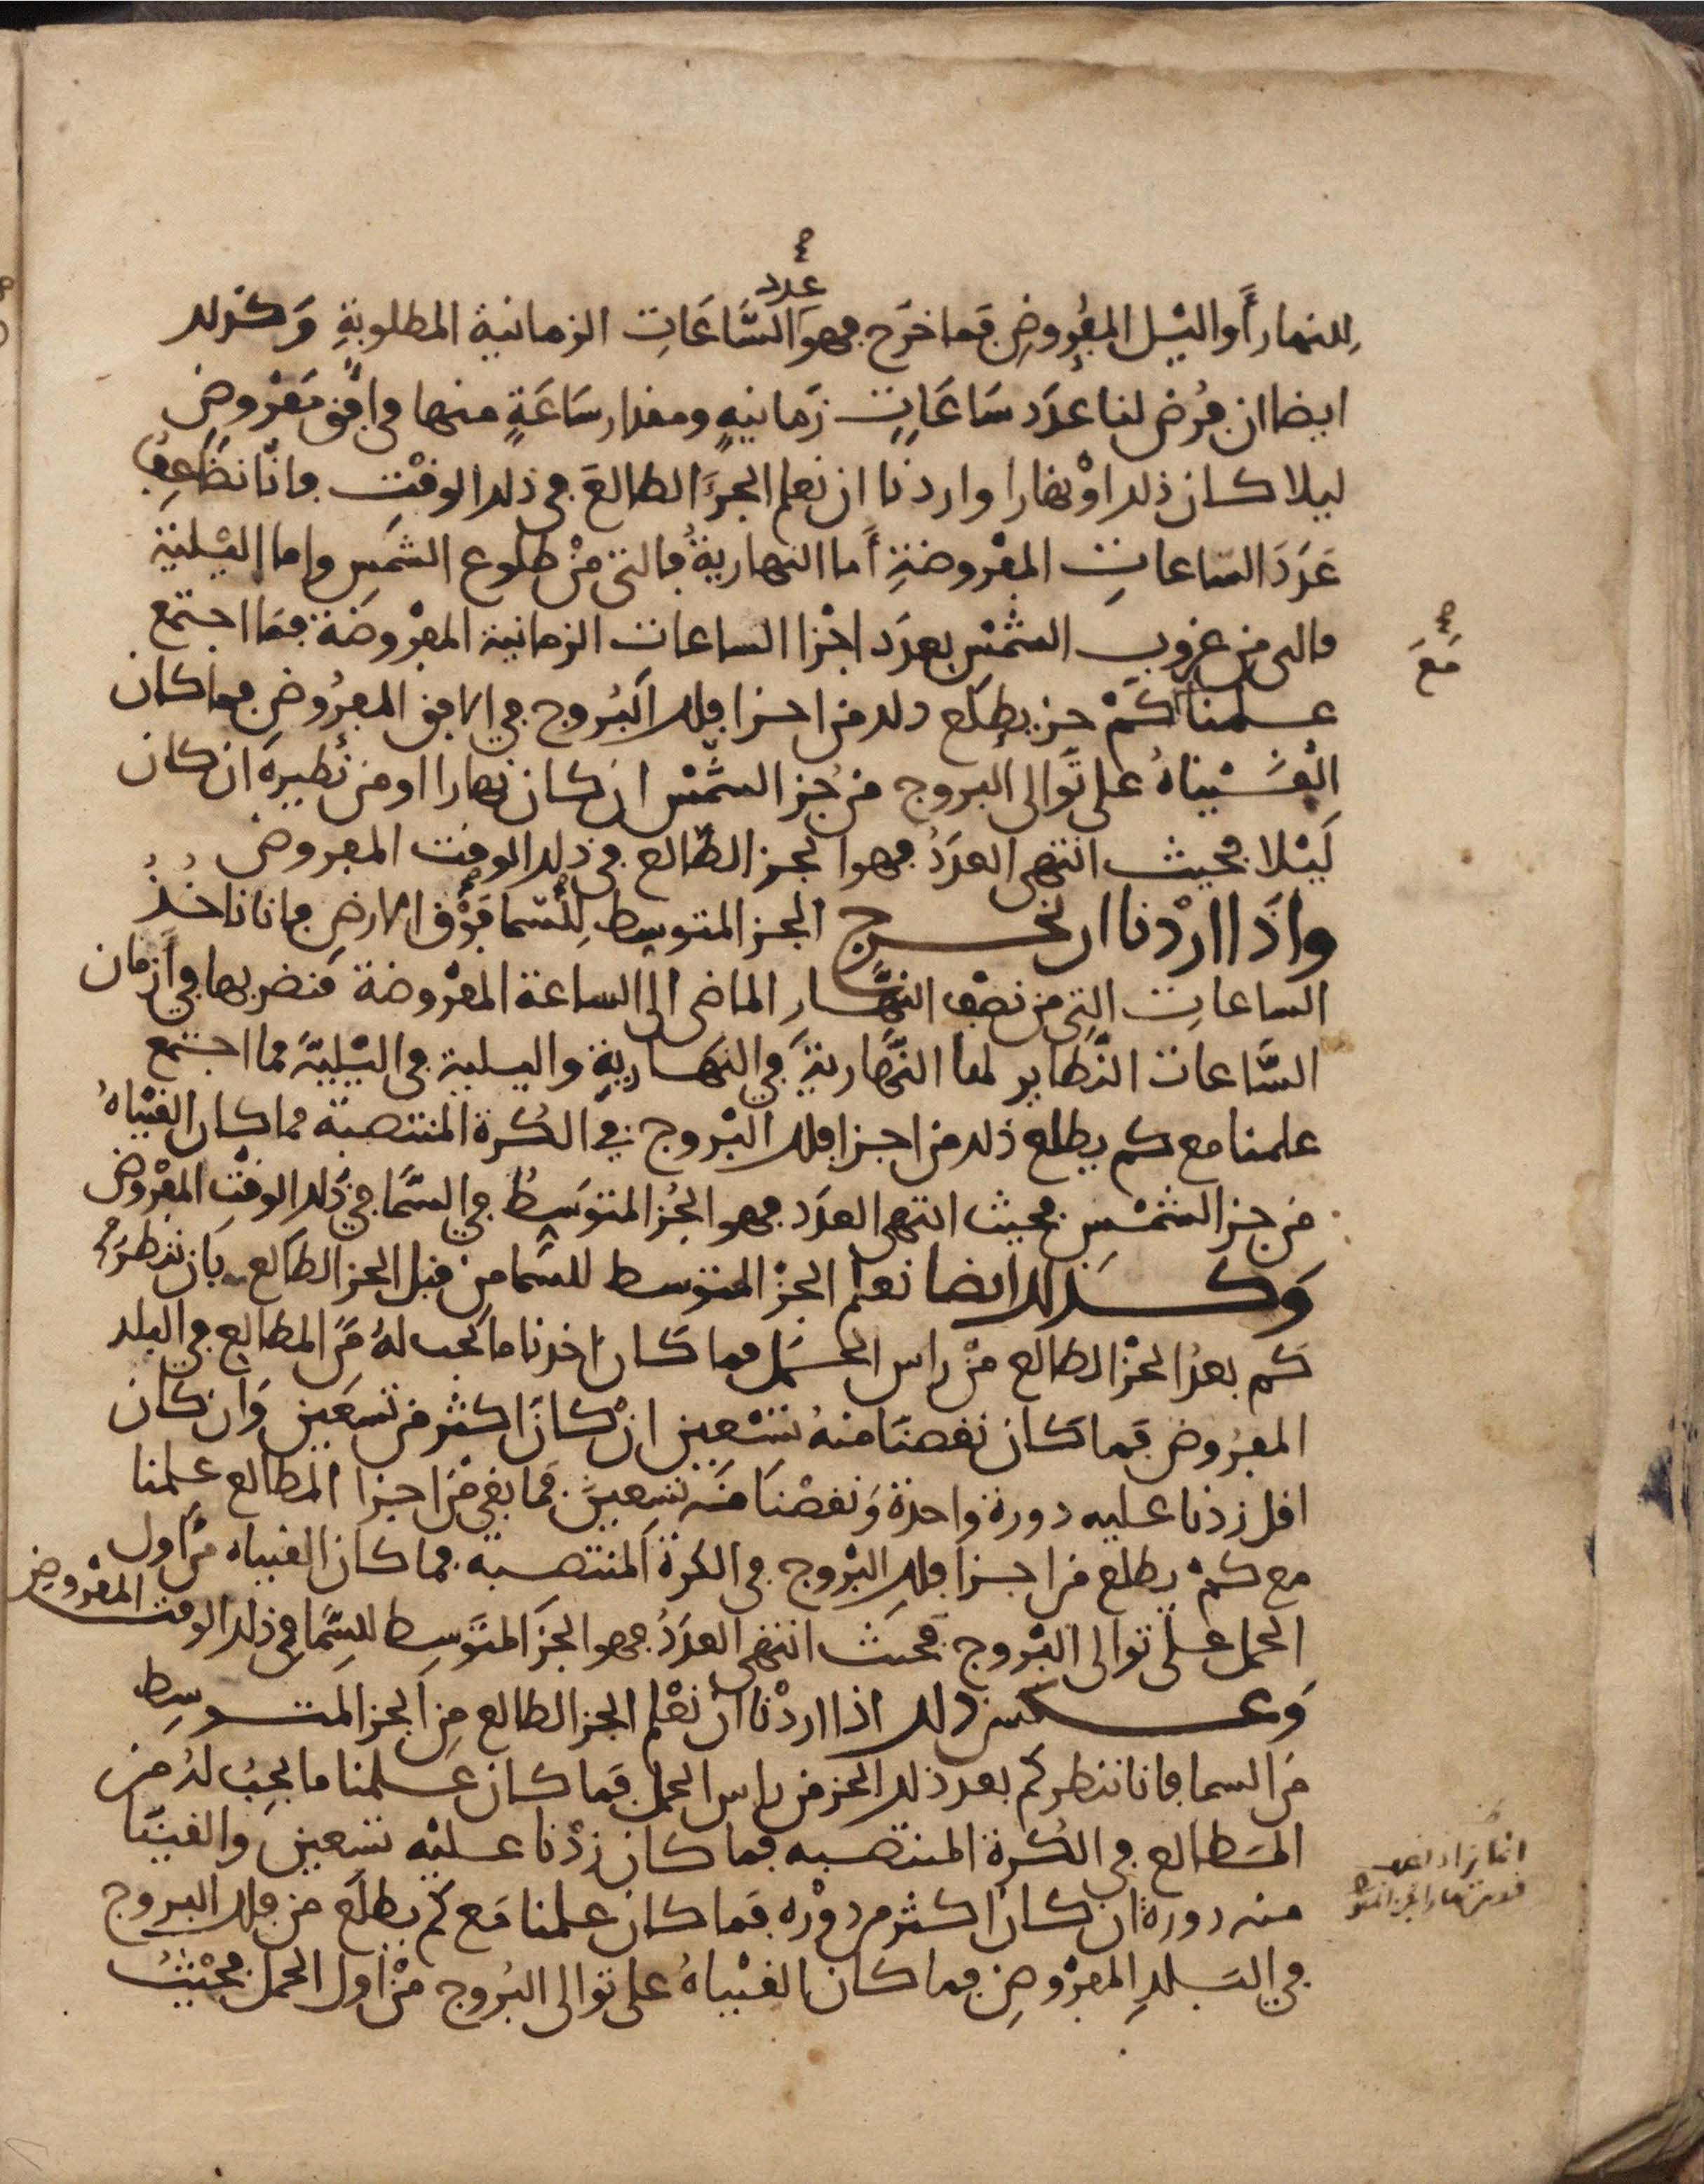 عدد
للنهار أو اليل المفروض فما خرج فهو الساعات الزمانية المطلوبة وكذلك
ايضا ان فرض لنا عدد ساعات زمانيه ومقدار ساعة منها في افق مفروض
ليلا كان ذلك او نهارا واردنا ان نعلم الجزء الطالع في ذلك الوقت فانا نضاعف
عدد الساعات المفروضة أما النهارية فالتي من طلوع الشمس واما اليلية
فالتى من غروب الشمس بعدد اجزا الساعات الزمانية المفروضة فما اجتمع
مع
علمنا كم جز يطلع ذلك من اجزا فلك البروج في الافق المفروض فما كان
القيناه على توالى البروج من جز الشمس ان كان نهارا او من نظيره ان كان
ليلا فحيث انتهى العدد فهو الجز الطالع في ذلك الوقت المفروض
واذا اردنا ان نخرج الجز المتوسط للسما فوق الارض فانا ناخذ
الساعات التي من نصف النهار الماضى الى الساعة المفروضة فنضربها في ازمان
الساعات النظاير لها النهارية في النهارية واليلية في اليلية فما اجتمع
علمنا مع كم يطلع ذلك من اجزا فلك البروج في الكرة المنتصبة فما كان القيناه
من جز الشمس فحيث انتهى العدد فهو الجز المتوسط في السما في ذلك الوقت المفروض
وكذلك ايضا نعلم الجز المتوسط للسما من قبل الجز الطالع بان ننظر
كم بعد الجز الطالع من راس الحمل فما كان اخذنا ما يجب له من المطالع في البلد
المفروض فما كان نقصنا منه تسعين ان كان اكثر من تسعين وان كان
اقل زدنا عليه دورة واحدة ونقصنا منه تسعين فما بقي من اجزا المطالع علمنا
مع كم يطلع من اجزا فلك البروج في الكرة المنتصبة فما كان القيناه من اول
الحمل على توالى البروج فحيث انتهى العدد فهو الجز المتوسط للسما في ذلك الوقت المفروض
وعكس ذلك اذا اردنا ان نعلم الجز الطالع من الجز المتوسط
من السما فانا ننظر كم بعد ذلك الجز من راس الحمل فما كان علمنا ما يجب له من
المطالع في الكرة المنتصبه فما كان زدنا عليه تسعين والقينا
انما يزاد
منه دورة ان كان اكثر من دوره فما كان علمنا مع كم يطلع من فلك البروج
في البلد المفروض فما كان القيناه على توالى البروج من اول الحمل فحيث